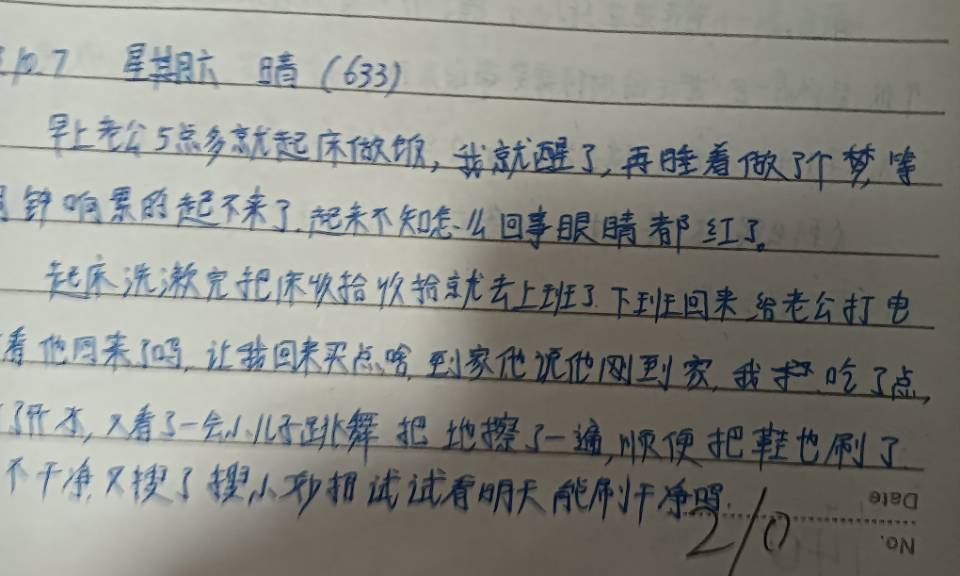 .10.7 星期六 晴 (633)
早上老公5点多就起床做饭,我就醒了,再睡着做了个梦,等
钟响累的起不来了.起来不知怎么回事眼睛都红了。
起床洗漱完把床收拾收拾就去上班了.下班回来给老公打电
看他回来了吗,让我回来买点啥,到家他说他刚到家,我 吃了点,
了开水,又看了一会小儿子跳舞 把地擦了一遍,顺便把鞋也刷了.
不干净.又 了 小 试试看明天能刷干净吗.
210
Date
No.